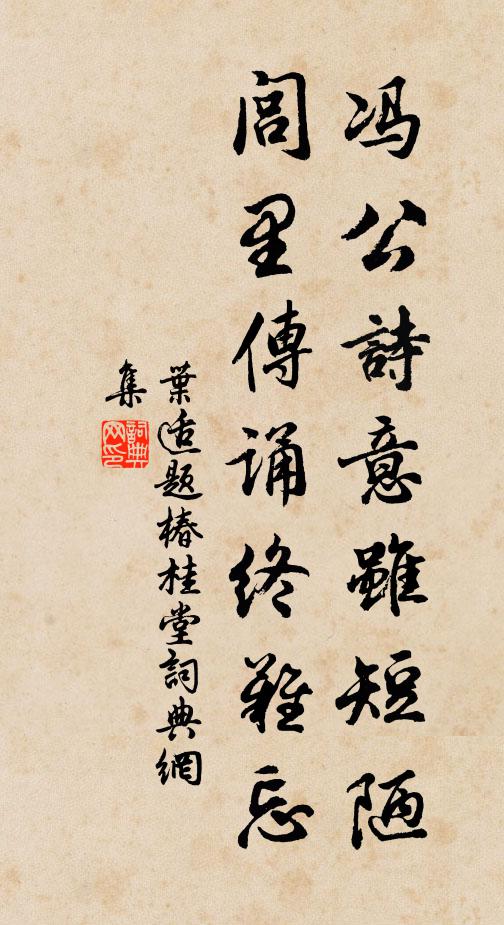 冯公詩意雖短陋
閭里傳誦终難忘
葉适题椿桂堂詞典網
集
詞典网印